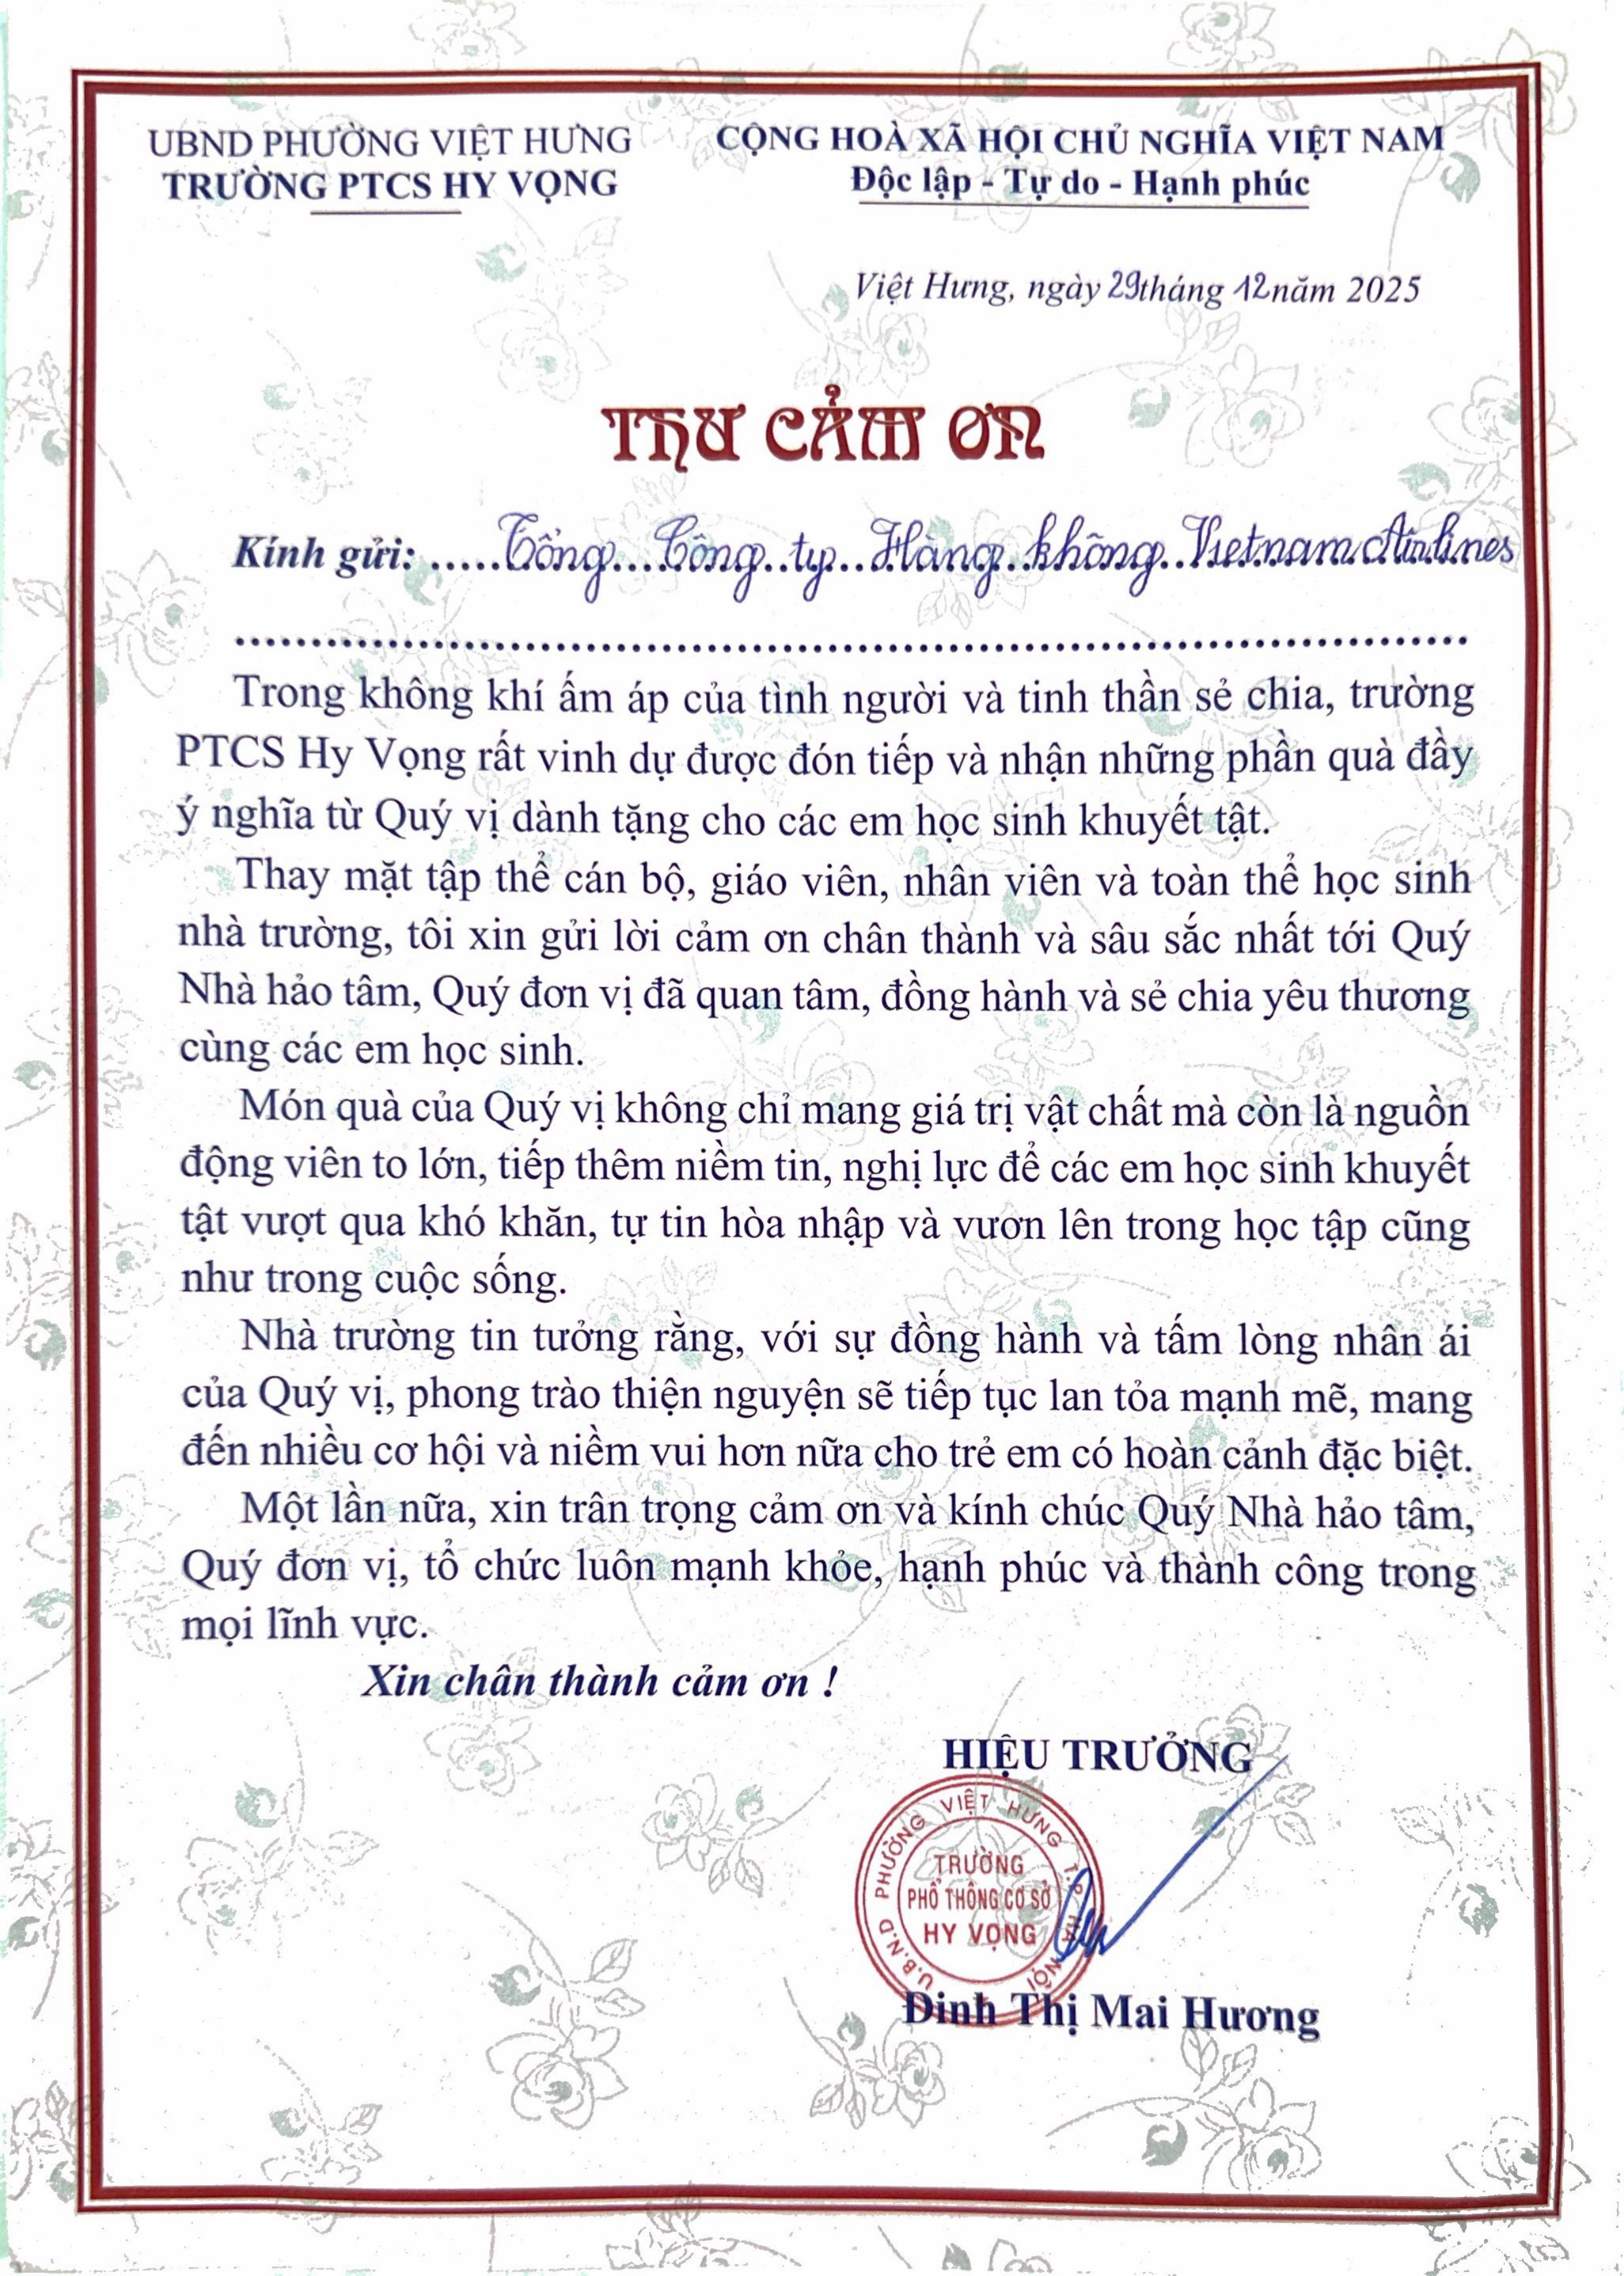 UBND PHƯỜNG VIỆT HƯNG
TRƯỜNG PTCS HY VỌNG
CỘNG HOÀ XÃ HỘI CHỦ NGHĨA VIỆT NAM
Độc lập - Tự do - Hạnh phúc
Việt Hưng, ngày 29 tháng 12 năm 2025
THƯ CẢM ƠN
Kính gửi: .....Tổng....Công..ty...Hàng..không..Vietnam Airlines
..................................................................................
Trong không khí ấm áp của tình người và tinh thần sẻ chia, trường
PTCS Hy Vọng rất vinh dự được đón tiếp và nhận những phần quà đầy
ý nghĩa từ Quý vị dành tặng cho các em học sinh khuyết tật.
Thay mặt tập thể cán bộ, giáo viên, nhân viên và toàn thể học sinh
nhà trường, tôi xin gửi lời cảm ơn chân thành và sâu sắc nhất tới Quý
Nhà hảo tâm, Quý đơn vị đã quan tâm, đồng hành và sẻ chia yêu thương
cùng các em học sinh.
Món quà của Quý vị không chỉ mang giá trị vật chất mà còn là nguồn
động viên to lớn, tiếp thêm niềm tin, nghị lực để các em học sinh khuyết
tật vượt qua khó khăn, tự tin hòa nhập và vươn lên trong học tập cũng
như trong cuộc sống.
Nhà trường tin tưởng rằng, với sự đồng hành và tấm lòng nhân ái
của Quý vị, phong trào thiện nguyện sẽ tiếp tục lan tỏa mạnh mẽ, mang
đến nhiều cơ hội và niềm vui hơn nữa cho trẻ em có hoàn cảnh đặc biệt.
Một lần nữa, xin trân trọng cảm ơn và kính chúc Quý Nhà hảo tâm,
Quý đơn vị, tổ chức luôn mạnh khỏe, hạnh phúc và thành công trong
mọi lĩnh vực.
Xin chân thành cảm ơn !
HIỆU TRƯỞNG
U.B.N.D PHƯỜNG VIỆT HƯNG T.P HÀ NỘI
TRƯỜNG
PHỔ THÔNG CƠ SỞ
HY VỌNG
Đinh Thị Mai Hương